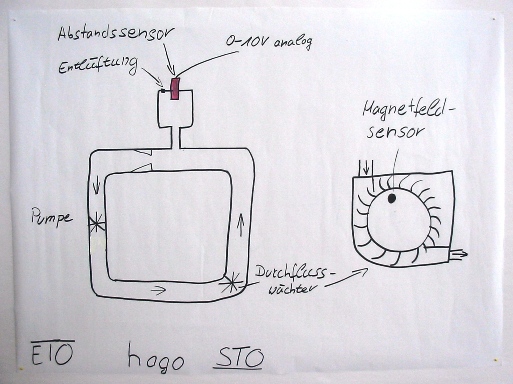 Abstandssensor
0-10V analog
Entlüftung
Magnetfeld-
sensor
Pumpe
Durchfluss-
wächter
ETO hago STO